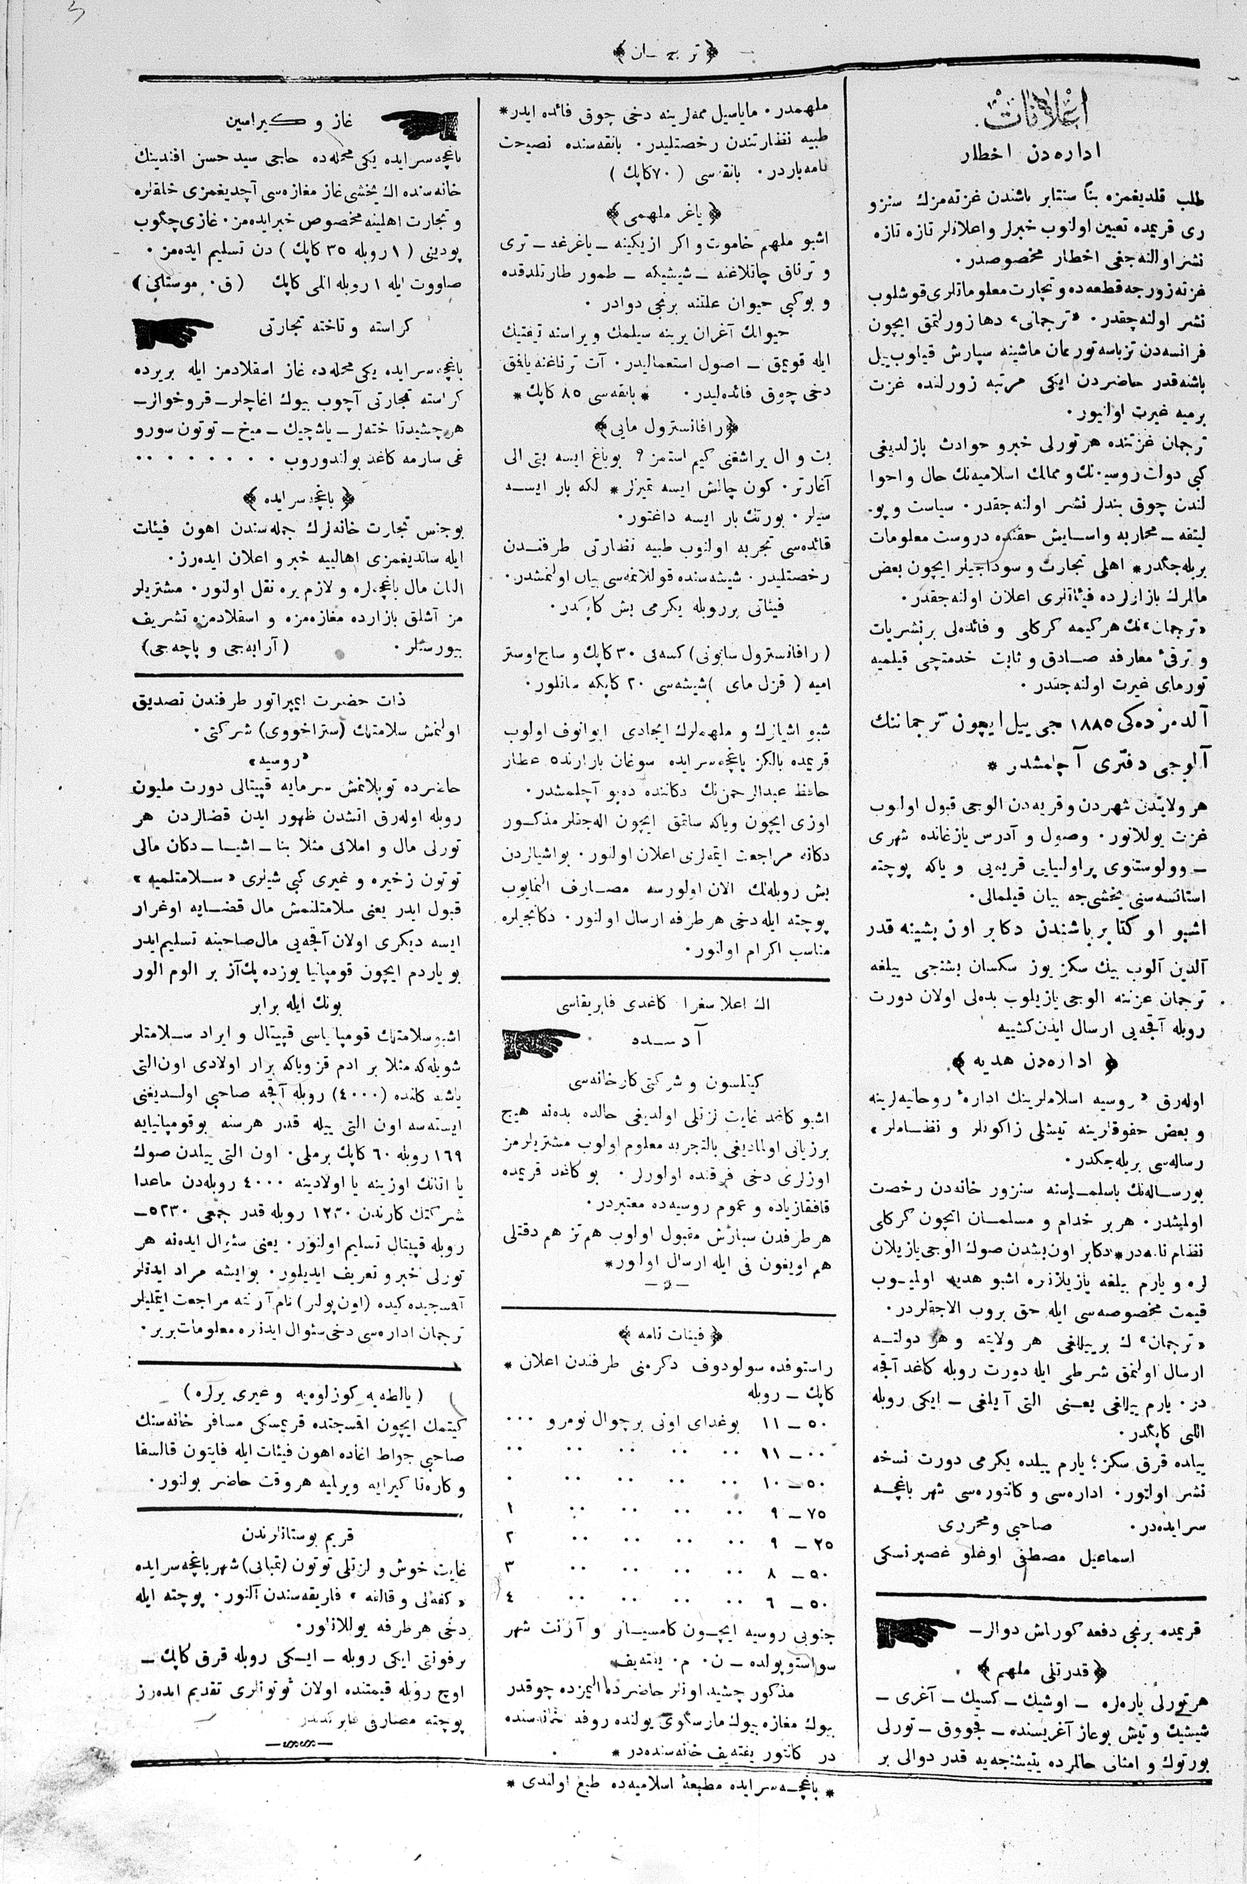 ﴿ ترجمان ﴾
اعلانات
اداره‌دن اخطار
طلب قلدیغمزه بناً سنتابر باشندن غزته‌مزك سنزو
ری قریمده تعیین اولنوب خبرلر و اعلانلر تازه تازه
نشر اولنه‌جغی اخطار مخصوصدر.
غزته زورجه قطعه‌ده و تجارت معلوماتلری قوشلوب
نشر اولنه‌چقدر. «ترجمانی» دها زورلتمق ایچون
فرانسه‌دن تزباسه‌تورغان ماشینه سپارش قیلوب ییل
باشنه‌قدر حاضردن ایکی مرتبه زورلنده غزت
برمیه غیرت اولنیور.
ترجمان غزتنده هر تورلی خبر و حوادث یازلدیغی
کبی دولت روسیه‌نك و ممالك اسلامیه‌نك حال و احوا
لندن چوق بندلر نشر اولنه‌جقدر. سیاست و پو۔
لیتقه ــ محاربه و اسایش حقنده دروست معلومات
بریله‌جکدر* اهلی تجارت و سوداجیلر ایچون بعض
ماللرك بازارلرده فیئاتلری اعلان اولنه‌جقدر.
«ترجمان»نك هر کیمه کرکلی و فائده‌لی بر نشریات
و ترقیٔ معارفه صادق و ثابت خدمتچی قیلمیه
تورمای غیرت اولنه‌جقدر.
آلدمزده‌کی ١٨٨٥ جی ییل ایچون ترجماننك
آلوجی دفتری آچلمشدر *
هر ولایتدن شهردن و قریه‌دن الوجی قبول اولنوب
غزت یوللانور. وصول و آدرس یازغانده شهری
ــ وولوستنوی پراولنیایی قریه‌یی و یاکه پوچته
استانسه‌سنی یخشی‌چه بیان قیلمالی.
اشبو اوکتابر باشندن دکابر اون بشینه قدر
آلدین آلوب بیك سکز یوز سکسان بشنجی ییلغه
ترجمان غزتنه الوجی یازیلوب بده‌لی اولان دورت
روبله آقچه‌یی ارسال ایدن کشییه
﴿ اداره‌دن هدیه ﴾
اوله‌رق «روسیه اسلاملرینك ادارهٔ روحانیه‌لرینه
و بعض حقوقلرینه تیشلی زاکونلر و نظاملر»
رساله‌سی بریله‌جکدر.
بو رساله‌نك باسلمه‌سنه سنزور خانه‌دن رخصت
اولمشدر. هر بر خدام و مسلمان ایچون کرکلی
نظام نامه‌در* دکابر اون بشدن صوك الوجی یازیلان
لره و یارم ییلغه یازیلانلره اشبو هدیه اولمیوب
قیمت مخصوصه‌سی ایله حق بروب الاجقلردر.
«ترجمان» ك بر ییللغی هر ولایته و هر دولته
ارسال اولنمق شرطی ایله دورت روبله کاغد آقچه
در. یارم ییللغی یعنی التی آیلغی ــ ایکی روبله
اللی کاپکدر.
ییلده قرق سکز؛ یارم ییلده یکرمی دورت نسخه
نشر اولنور. اداره‌سی و کانتوره‌سی شهر باغچه
سرایده‌در. صاحبی و محرری
اسماعیل مصطفی اوغلو غصپرنسکی
قریمده برنجی دفعه کوراش دوالر ــ
﴿ قدرتلی ملهم ﴾
هر تورلی یاره‌لره ــ اوشیك ــ کسیك ــ آغری ــ
شیشیك و تیش بوغاز آغریسنده ــ قجووق ــ تورلی
بورتوك و امثالی حاللرده یتیشنجه‌یه قدر دوالی بر
ملهمدر. مایاسیل ممه‌لرینه دخی چوق فائده ایدر*
طبیه نظارتندن رخصتلیدر. بانقه‌سنده نصیحت
نامه باردر. بانقه‌سی (٧٠ کاپك)
﴿ یاغر ملهمی ﴾
اشبو ملهم خاموت و اکر ازیکینه ــ یاغرغه ــ تری
و ترناق چاتلاغنه ــ شیشیکه ــ طمور طارتلدقده
و بو کبی حیوان علتنه برنجی دوادر.
حیوانك آغران یرینه سیلمك و براسنه تیفتیك
ایله قویمق ــ اصول استعمالیدر. آت ترناغنه یاقق
دخی چوق فائده‌لیدر. * بانقه‌سی ٨٥ کاپك *
﴿ رافانسترول مایی ﴾
بت و ال یراشغنی کیم استمز ؟ بو یاغ ایسه بتی الی
آغارتر. کون چالش ایسه تمیزلر * لکه بار ایسه
سیلر. بورتك بار ایسه داغتور.
فائده‌سی تجربه اولنوب طبیه نظارتی طرفندن
رخصتلیدر. شیشه‌سنده قوللانمه‌سی بیان اولنمشدر.
فیئاتی بر روبله یکرمی بش کاپکدر.
(رافانسترول سابونی) کسه‌کی ٣٠ کاپك و ساچ اوستر
امیه (قزل مای) شیشه‌سی ٢٠ کاپکه ساتلور.
شبو اشیالرك و ملهملرك ایجادی ایوانوف اولوب
قریمده یالکز باغچه سرایده سوغان بازارنده عطار
حافظ عبدالرحمن‌نك دکاننده ده‌پو آچلمشدر.
اوزی ایچون ویاکه ساتمق ایچون اله‌جقلر مذکور
دکانه مراجعت ایتمه‌لری اعلان اولنور. بو اشیالردن
بش روبله‌لك الان اولورسه مصارف النمایوب
پوچته ایله دخی هر طرفه ارسال اولنور. دکانجیلره
مناسب اکرام اولنور.
اك اعلا سغرا کاغدی فابریقاسی
آدسده
کیتلسون و شرکتی کارخانه‌سی
اشبو کاغد غایت لزتلی اولدیغی حالده بدنه هیچ
بر زیانی اولمادیغی بالتجربه معلوم اولوب مشتریلرمز
اوزلری دخی فرقنده اولورلر. بو کاغد قریمده
قافقازیاده و عموم روسیه‌ده معتبردر.
هر طرفدن سپارش مقبول اولوب هم تز هم دقتلی
هم اویغون فی ایله ارسال اولنور*
﴿ فیئات نامه ﴾
راستوفده سولودوف دکرمنی طرفندن اعلان *
کاپك ــ روبله
٥٠ ــ ١١ بوغدای اونی بر چوال نومرو ٠٠٠
٠٠ ــ ١١ ٠٠ ٠٠ ٠٠ ٠٠ ٠٠
٥٠ ــ ١٠ ٠٠ ٠٠ ٠٠ ٠٠ ٠
٧٥ ــ ٩ ٠٠ ٠٠ ٠٠ ٠٠ ١
٢٥ ــ ٩ ٠٠ ٠٠ ٠٠ ٠٠ ٢
٥٠ ــ ٨ ٠٠ ٠٠ ٠٠ ٠٠ ٣
٥٠ ــ ٦ ٠٠ ٠٠ ٠٠ ٠٠ ٤
جنوبی روسیه ایچون کامسیار و آژنت شهر
سواستوپولده ــ ن. م. یفته‌یف
مذکور چشید اونلر حاضرده المزده چوقدر
بیوك مغازه بیوك مارسقوی یولنده روفه خانه‌سنده
در کانتور یفته‌یف خانه‌سنده‌در *
غاز و کیراسین
باغچه سرایده یکی محله‌ده حاجی سید حسن افندینك
خانه‌سنده اك یخشی غاز مغازه‌سی آچدیغمزی خلقلره
و تجارت اهلینه مخصوص خبر ایده‌مز. غازی چکوب
پودینی (١ روبله ٣٥ کاپك) دن تسلیم ایده‌مز.
صاووت ایله ١ روبله اللی کاپك (ق. موستاکی)
کراسته و تاخته تجارتی
باغچه سرایده یکی محله‌ده غاز اسقلادمز ایله بریرده
کراسته تجارتی آچوب بیوك اغاچلر ــ قروخواز ــ
هر چشید تاخته‌لر ــ یاشچیك ــ میخ ــ توتون سورو
غی سارمه کاغد بولندوروب ٠ ٠ ٠ ٠ ٠ ٠ ٠ ٠
﴿ باغچه سرایده ﴾
بو جنس تجارت خانه‌لرك جمله‌سندن اهون فیئات
ایله ساتدیغمزی اهالییه خبر و اعلان ایده‌رز.
النان مال باغچه‌لره و لازم یره نقل اولنور. مشتریلر
مز آشلق بازارده مغازه‌مزه و اسقلادمزه تشریف
بیورسنلر. (آرابه‌جی و پاچه‌جی)
ذات حضرت ایمپراتور طرفندن تصدیق
اولنمش سلامتلك (ستراخووی) شرکتی.
«روسیه»
حاضرده توپلانمش سرمایه قپیتالی دورت ملیون
روبله اوله‌رق اتشدن ظهور ایدن قضالردن هر
تورلی مال و املاکی مثلا بنا ــ اشیا ــ دکان مالی
توتون زخیره و غیری کبی شیلری «سلامتلمیه»
قبول ایدر یعنی سلامتلنمش مال قضایه اوغرار
ایسه دیکری اولان آقچه‌یی مال صاحبنه تسلیم ایدر
بو یاردم ایچون قومپانیا یوزده پك آز بر الوم الور
بونك ایله برابر
اشبو سلامتلك قومپانیاسی قپیتال و ایراد سلامتلر
شویله که مثلا بر ادم قز ویاکه یرار اولادی اون التی
یاشنه کلنده (٤٠٠٠) روبله آقچه صاحبی اولدیغنی
ایسته‌سه اون التی ییله قدر هر سنه بو قومپانیایه
١٦٩ روبله ٦٠ کاپك برملی. اون التی ییلدن صوك
یا اتانك اوزینه یا اولادینه ٤٠٠٠ روبله‌دن ماعدا
شرکتك کارندن ١٢٣٠ روبله قدر جمعی ٥٢٣٠ ــ
روبله قپیتال تسلیم اولنور. یعنی سئوال ایدنه هر
تورلی خبر و تعریف ایدیلور. بو ایشه مراد ایدنلر
آقمسجیدده کیده (اون پولر) نام آژنته مراجعت ایتملیلر
ترجمان اداره‌سی دخی سئوال ایدنلره معلومات بربر.
(یالطه‌یه کوزلوه‌یه و غیری یرلره)
کیتمك ایچون اقمسجتده قریمسکی مسافر خانه‌سنك
صاحبی جواط اغاده اهون فیئات ایله فایتون قالسقا
و کاره‌تا کیرایه ویرلمیه هر وقت حاضر بولنور.
قریم بوستانلرندن
غایت خوش و لزتلی توتون (تمباکی) شهر باغچه سرایده
«کفه‌لی و قالفه» فاریقه‌سندن آلنور. پوچته ایله
دخی هر طرفه یوللانلور.
بر فونتی ایکی روبله ــ ایکی روبله قرق کاپك ــ
اوچ روبله قیمتنده اولان توتونلری تقدیم ایده‌رز
پوچته مصارفی
* باغچه سرایده مطبعهٔ اسلامیه‌ده طبع اولندی *